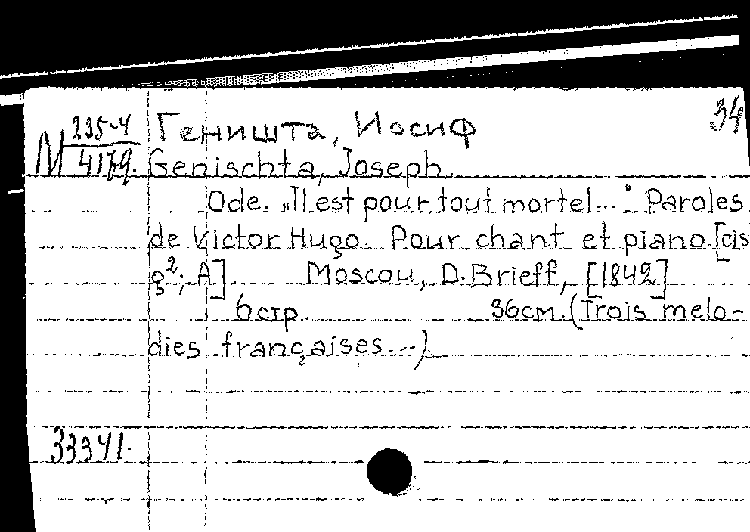 34
М 235-4 Геништа, Иосиф
4179. Genischta, Joseph.
Ode. „Il est pour tout mortel...". Paroles
de Victor Hugo. Pour chant et piano. [cis
g²; A] Moscou, D. Brieff, [1842]
6 стр. 36 см. (Trois melo-
dies françaises...)
33341.